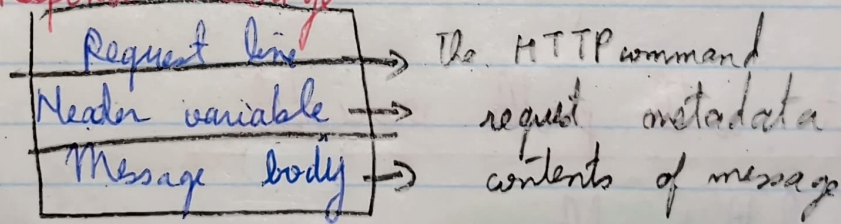 Request line → The HTTP command
Header variable → request metadata
Message body → contents of message